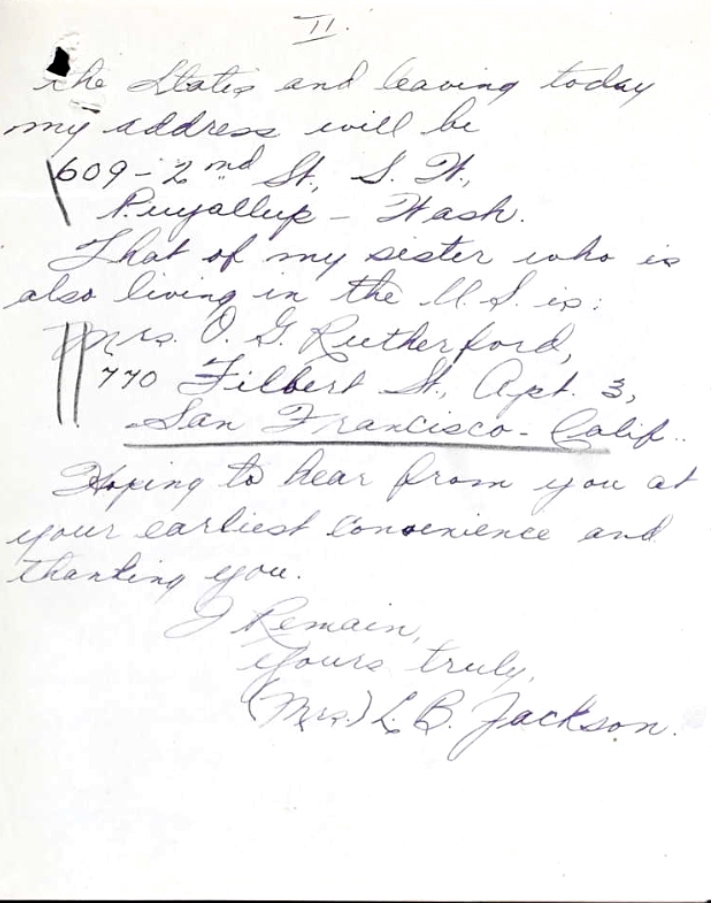 II.
the States and leaving today
my address will be
609-2nd St., S. W.,
Puyallup - Wash.
That of my sister who is
also living in the U.S. is:
Mrs. O. G. Rutherford,
770 Filbert St., Apt. 3,
San Francisco - Calif.
Hoping to hear from you at
your earliest convenience and
thanking you.
I Remain,
Yours truly,
(Mrs.) L. B. Jackson.